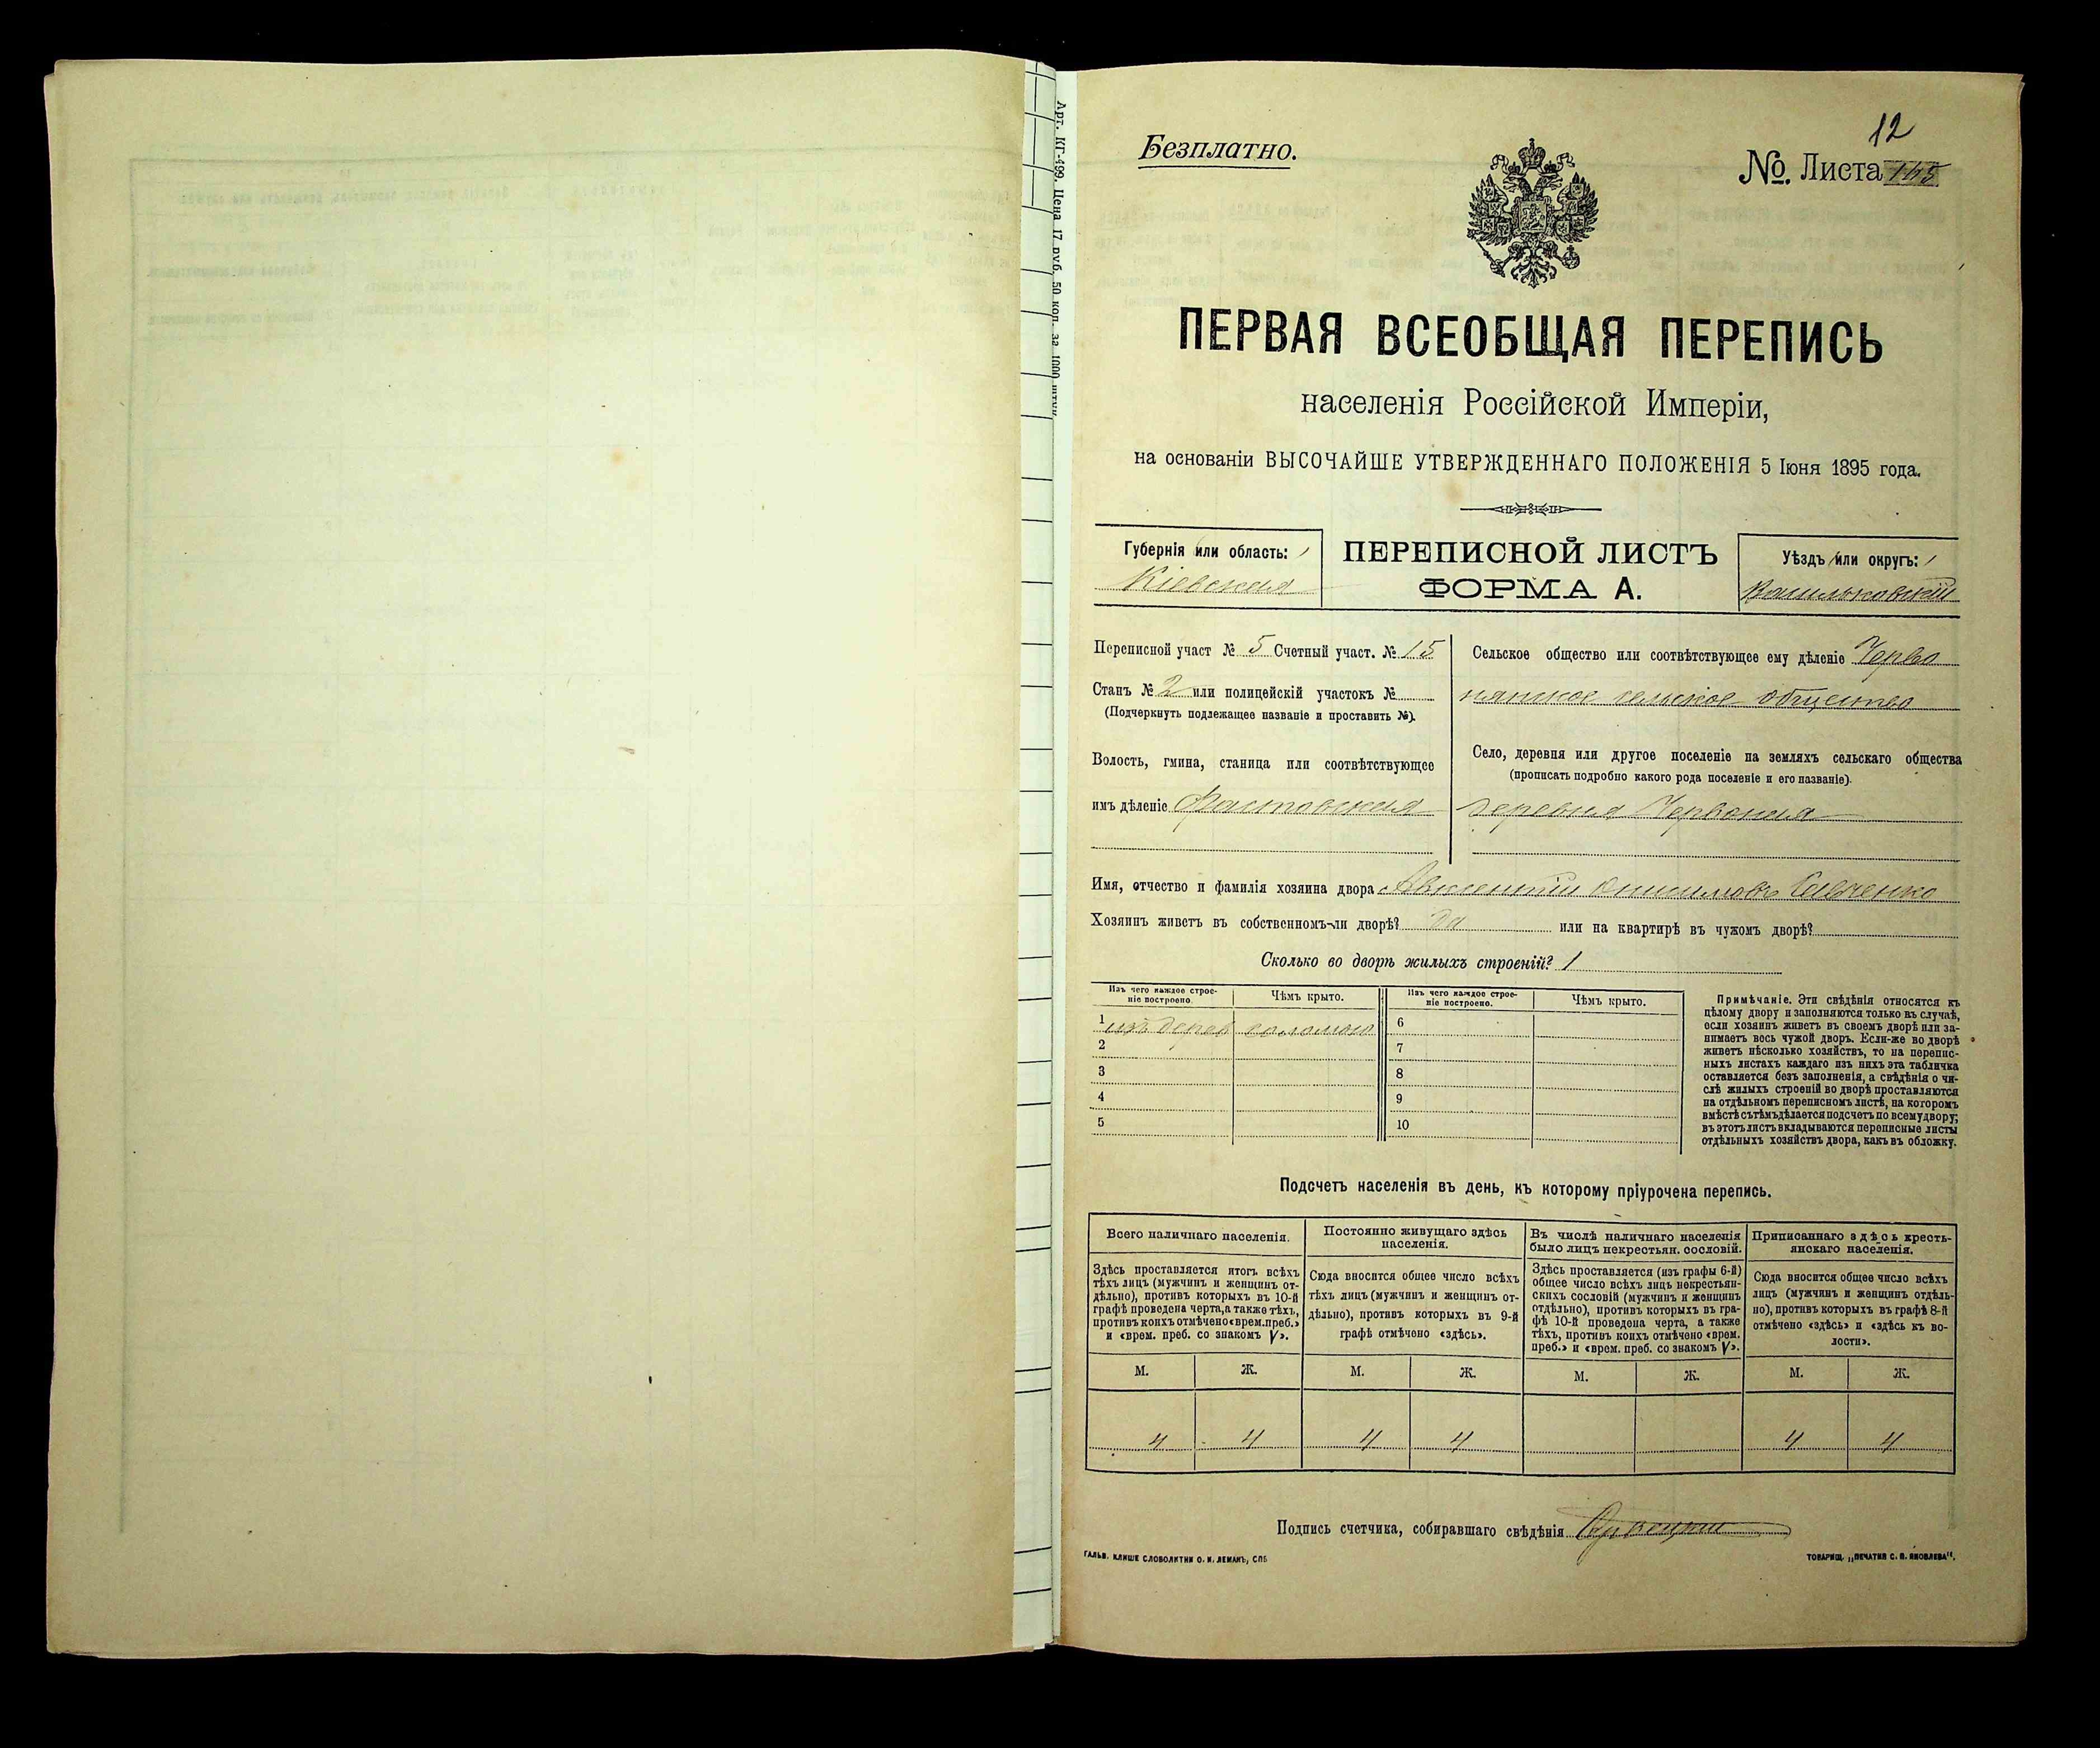 Арт. КГ-499. Цена 17 руб. 50 коп. за 1000 штук
12
Безплатно.
№. Листа 145
ПЕРВАЯ ВСЕОБЩАЯ ПЕРЕПИСЬ
населенія Россійской Имперіи,
на основаніи ВЫСОЧАЙШЕ УТВЕРЖДЕННАГО ПОЛОЖЕНІЯ 5 Іюня 1895 года.
Губернія или область:
Кіевская
ПЕРЕПИСНОЙ ЛИСТЪ
ФОРМА А.
Уѣздъ или округъ:
Васильковскій
Переписной участ № 5 Счетный участ. № 15
Станъ № 2 или полицейскій участокъ №
(Подчеркнуть подлежащее названіе и проставить №).
Волость, гмина, станица или соотвѣтствующее
имъ дѣленіе Фастовская
Сельское общество или соотвѣтствующее ему дѣленіе Черво
нянское сельское общество
Село, деревня или другое поселеніе на земляхъ сельскаго общества
(прописать подробно какого рода поселеніе и его названіе).
деревня Червоная
Имя, отчество и фамилія хозяина двора Авксентій Онисимовъ Савченко
Хозяинъ живетъ въ собственномъ-ли дворѣ? да или на квартирѣ въ чужомъ дворѣ?
Сколько во дворѣ жилыхъ строеній? 1
Изъ чего каждое строе-
ніе построено.
Чѣмъ крыто.
Изъ чего каждое строе-
ніе построено.
Чѣмъ крыто.
1 изъ дерев соломою
2
3
4
5
6
7
8
9
10
Примѣчаніе. Эти свѣдѣнія относятся къ
цѣлому двору и заполняются только въ случаѣ,
если хозяинъ живетъ въ своемъ дворѣ или за-
нимаетъ весь чужой дворъ. Если-же во дворѣ
живетъ нѣсколько хозяйствъ, то на перепис-
ныхъ листахъ каждаго изъ нихъ эта табличка
оставляется безъ заполненія, а свѣдѣнія о чи-
слѣ жилыхъ строеній во дворѣ проставляются
на отдѣльномъ переписномъ листѣ, на которомъ
вмѣстѣ съ тѣмъ дѣлается подсчетъ по всему двору;
въ этотъ листъ вкладываются переписные листы
отдѣльныхъ хозяйствъ двора, какъ въ обложку.
Подсчетъ населенія въ день, къ которому пріурочена перепись.
Всего наличнаго населенія.
Здѣсь проставляется итогъ всѣхъ
тѣхъ лицъ (мужчинъ и женщинъ от-
дѣльно), противъ которыхъ въ 10-й
графѣ проведена черта, а также тѣхъ,
противъ коихъ отмѣчено «врем. преб.»
и «врем. преб. со знакомъ V».
М. Ж.
4 4
Постоянно живущаго здѣсь
населенія.
Сюда вносится общее число всѣхъ
тѣхъ лицъ (мужчинъ и женщинъ от-
дѣльно), противъ которыхъ въ 9-й
графѣ отмѣчено «здѣсь».
М. Ж.
4 4
Въ числѣ наличнаго населенія
было лицъ некрестьян. сословій.
Здѣсь проставляется (изъ графы 6-й)
общее число всѣхъ лицъ некрестьян-
скихъ сословій (мужчинъ и женщинъ
отдѣльно), противъ которыхъ въ гра-
фѣ 10-й проведена черта, а также
тѣхъ, противъ коихъ отмѣчено «врем.
преб.» и «врем. преб. со знакомъ V».
М. Ж.
Приписаннаго здѣсь кресть-
янскаго населенія.
Сюда вносится общее число всѣхъ
лицъ (мужчинъ и женщинъ отдѣль-
но), противъ которыхъ въ графѣ 8-й
отмѣчено «здѣсь» и «здѣсь къ во-
лости».
М. Ж.
4 4
Подпись счетчика, собиравшаго свѣдѣнія
ГАЛЬВ. КЛИШЕ СЛОВОЛИТНИ О. И. ЛЕМАНЪ, СПБ
ТОВАРИЩ. „ПЕЧАТНЯ С. П. ЯКОВЛЕВА".